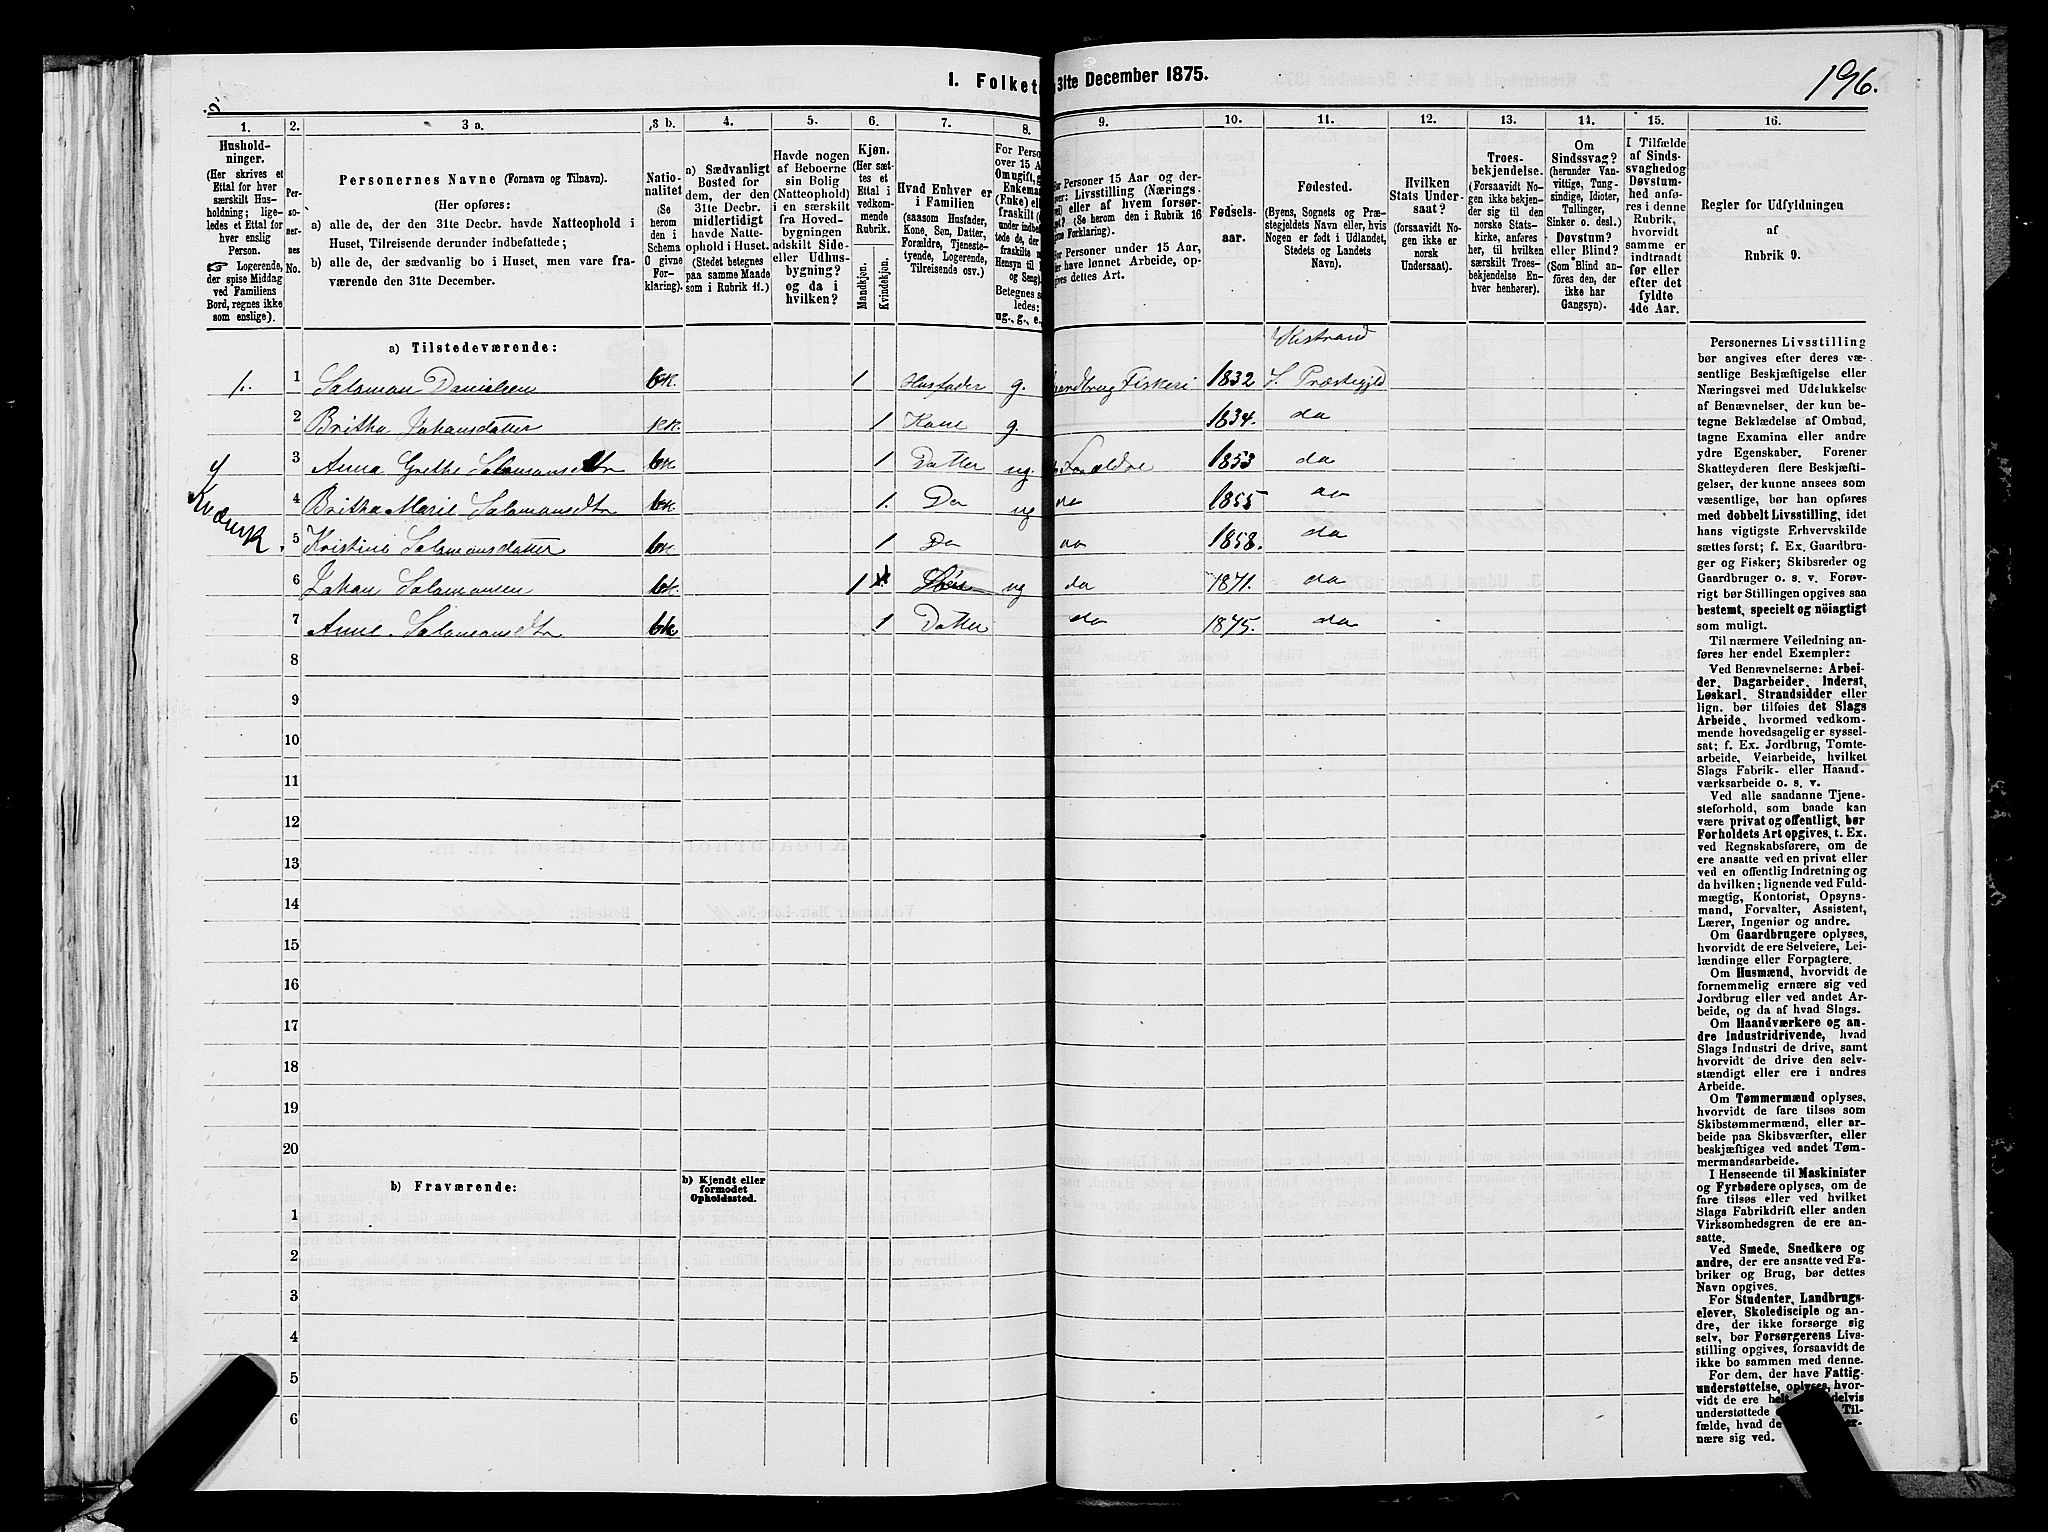 1. Folket
31te December 1875.
196.
1.
2.
3 a.
3 b.
4.
5.
6.
7.
8.
9.
10.
11.
12.
13.
14.
15.
16.
Hushold-
ninger.
(Her skrives et
Ettal for hver
særskilt Hus-
holdning; lige-
ledes et Ettal for
hver enslig
Person.
☞ Logerende,
der spise Middag
ved Familiens
Bord, regnes ikke
som enslige).
Per-
so-
ner-
nes
No.
Personernes Navne (Fornavn og Tilnavn).
(Her opføres:
a) alle de, der den 31te Decbr. havde Natteophold i
Huset, Tilreisende derunder indbefattede;
b) alle de, der sædvanlig bo i Huset, men vare fra-
værende den 31te December.
Natio-
nalitet
(Se
herom
den i
Schema
O givne
For-
klaring).
a) Sædvanligt
Bosted for
dem, der den
31te Decbr.
midlertidigt
havde Natte-
ophold i Huset.
(Stedet betegnes
paa samme Maade
som i Rubrik 11.)
Havde nogen
af Beboerne
sin Bolig
(Natteophold)
i en særskilt
fra Hoved-
bygningen
adskilt Side-
eller Udhus-
bygning?
og da i
hvilken?
Kjøn.
(Her sæt-
tes et
Ettal i
vedkom-
mende
Rubrik.
Mandkjøn.
Kvindekjøn.
Hvad Enhver er
i Familien
(saasom Husfader,
Kone, Søn, Datter,
Forældre, Tjeneste-
tyende, Logerende,
Tilreisende osv.)
For Person
over 15 A
Omugift,
Enkema
(Enke) el
fraskilt
under indbe
tede de, der
fraskilte
Hensyn til
og Seng).
Betegnes s
ledes:
ug., g., e.,
For Personer 15 Aar og der-
over: Livsstilling (Nærings-
vei) eller af hvem forsør-
get? (Se herom den i Rubrik 16
givne Forklaring).
Personer under 15 Aar,
der have lønnet Arbeide, op-
gives dettes Art.
Fødsels-
aar.
Fødested.
(Byens, Sognets og Præ-
stegjeldets Navn eller, hvis
Nogen er født i Udlandet,
Stedets og Landets
Navn).
Hvilken
Stats Under-
saat?
(forsaavidt No-
gen ikke er
norsk
Undersaat).
Troes-
bekjendelse.
(Forsaavidt No-
gen ikke bekjen-
der sig til den
norske Stats-
kirke, anføres
her, til hvilken
særskilt Troes-
bekjendelse En-
hver henhører).
Om
Sindssvag?
(herunder Van-
vittige, Tung-
sindige, Idioter,
Tullinger,
Sinker o. desl.)
Døvstum?
eller Blind?
(Som Blind an-
føres den, der
ikke har
Gangsyn).
I Tilfælde
af Sinds-
svaghed og
Døvstum-
hed anfø-
res i denne
Rubrik,
hvorvidt
samme er
indtraadt
før eller
efter det
fyldte
4de Aar.
Regler for Udfyldningen
af
Rubrik 9.
a) Tilstedeværende:
Kistrand
1. 1 Salamon Danielsen bk. 1 Husfader g. Gaardbrug Fiskeri 1832 S. Præstegjeld
2 Britha Johansdatter kk. 1 Kone g. 1834. da
3 Anna Grethe Salamonsdtr bk 1 Datter ug. Forældre 1853 da
4 Britha Marie Salamonsdtr bk 1. Do ug da 1855 da
Kvænsk.
5 Kristine Salamonsdatter bk 1 Do da 1858. da
6 Johan Salamonsen bk. 1 Søn ug da 1871. da
7 Anne Salamonsdtr bk 1 Datter da 1875. da
8
9
10
11
12
13
14
15
16
17
18
19
20
b) Fraværende:
b) Kjendt eller
formodet
Opholdssted.
1
2
3
4
5
6
Personernes Livsstilling
bør angives efter deres væ-
sentlige Beskjæftigelse eller
Næringsvei med Udelukkelse
af Benævnelser, der kun be-
tegne Beklædelse af Ombud,
tagne Examina eller andre
ydre Egenskaber. Forener
Skatteyderen flere Beskjæfti-
gelser, der kunne ansees som
væsentlige, bør han opføres
med dobbelt Livsstilling, idet
hans vigtigste Erhvervskilde
sættes først; f. Ex. Gaardbru-
ger og Fisker; Skibsreder og
Gaardbruger o. s. v. Forøv-
rigt bør Stillingen opgives saa
bestemt, specielt og nöiagtigt
som muligt.
Til nærmere Veiledning an-
føres her endel Exempler:
Ved Benævnelserne: Arbei-
der, Dagarbeider, Inderst,
Løskarl, Strandsidder eller
lign. bør tilføies det Slags
Arbeide, hvormed vedkom-
mende hovedsagelig er syssel-
sat; f. Ex. Jordbrug, Tomte-
arbeide, Veiarbeide, hvilket
Slags Fabrik- eller Haand-
værksarbeide o. s. v.
Ved alle saadanne Tjene-
steforhold, som baade kan
være privat og offentligt, bør
Forholdets Art opgives, t. Ex.
ved Regnskabsførere, om de
ere ansatte ved en privat eller
ved en offentlig Indretning og
da hvilken; lignende ved Fuld-
mægtig, Kontorist, Opsyns-
mand, Forvalter, Assistent,
Lærer, Ingeniør og andre.
Om Gaardbrugere oplyses,
hvorvidt de ere Selveiere, Lei-
lændinge eller Forpagtere.
Om Husmænd, hvorvidt de
fornemmelig ernære sig ved
Jordbrug eller ved andet Ar-
beide, og da af hvad Slags.
Om Haandværkere og an-
dre Industridrivende, hvad
Slags Industri de drive, samt
hvorvidt de drive den selv-
stændigt eller ere i andres
Arbeide.
Om Tømmermænd oplyses,
hvorvidt de fare tilsøs som
Skibstømmermænd, eller ar-
beide paa Skibsværfter, eller
beskjæftiges ved andet Tøm-
mermandsarbeide.
I Henseende til Maskinister
og Fyrbødere oplyses, om de
fare tilsøs eller ved hvilket
Slags Fabrikdrift eller anden
Virksomhedsgren de ere an-
satte.
Ved Smede, Snedkere og
andre, der ere ansatte ved Fa-
briker og Brug, bør dettes
Navn opgives.
For Studenter, Landbrugs-
elever, Skoledisciple og an-
dre, der ikke forsørge sig
selv, bør Forsørgerens Livs-
stilling opgives, forsaavidt de
ikke bo sammen med denne.
For dem, der have Fattig-
understøttelse, oplyses, hvor-
vidt de ere helt delvis
understøttede Til-
fælde, hvad de
nære sig ved.